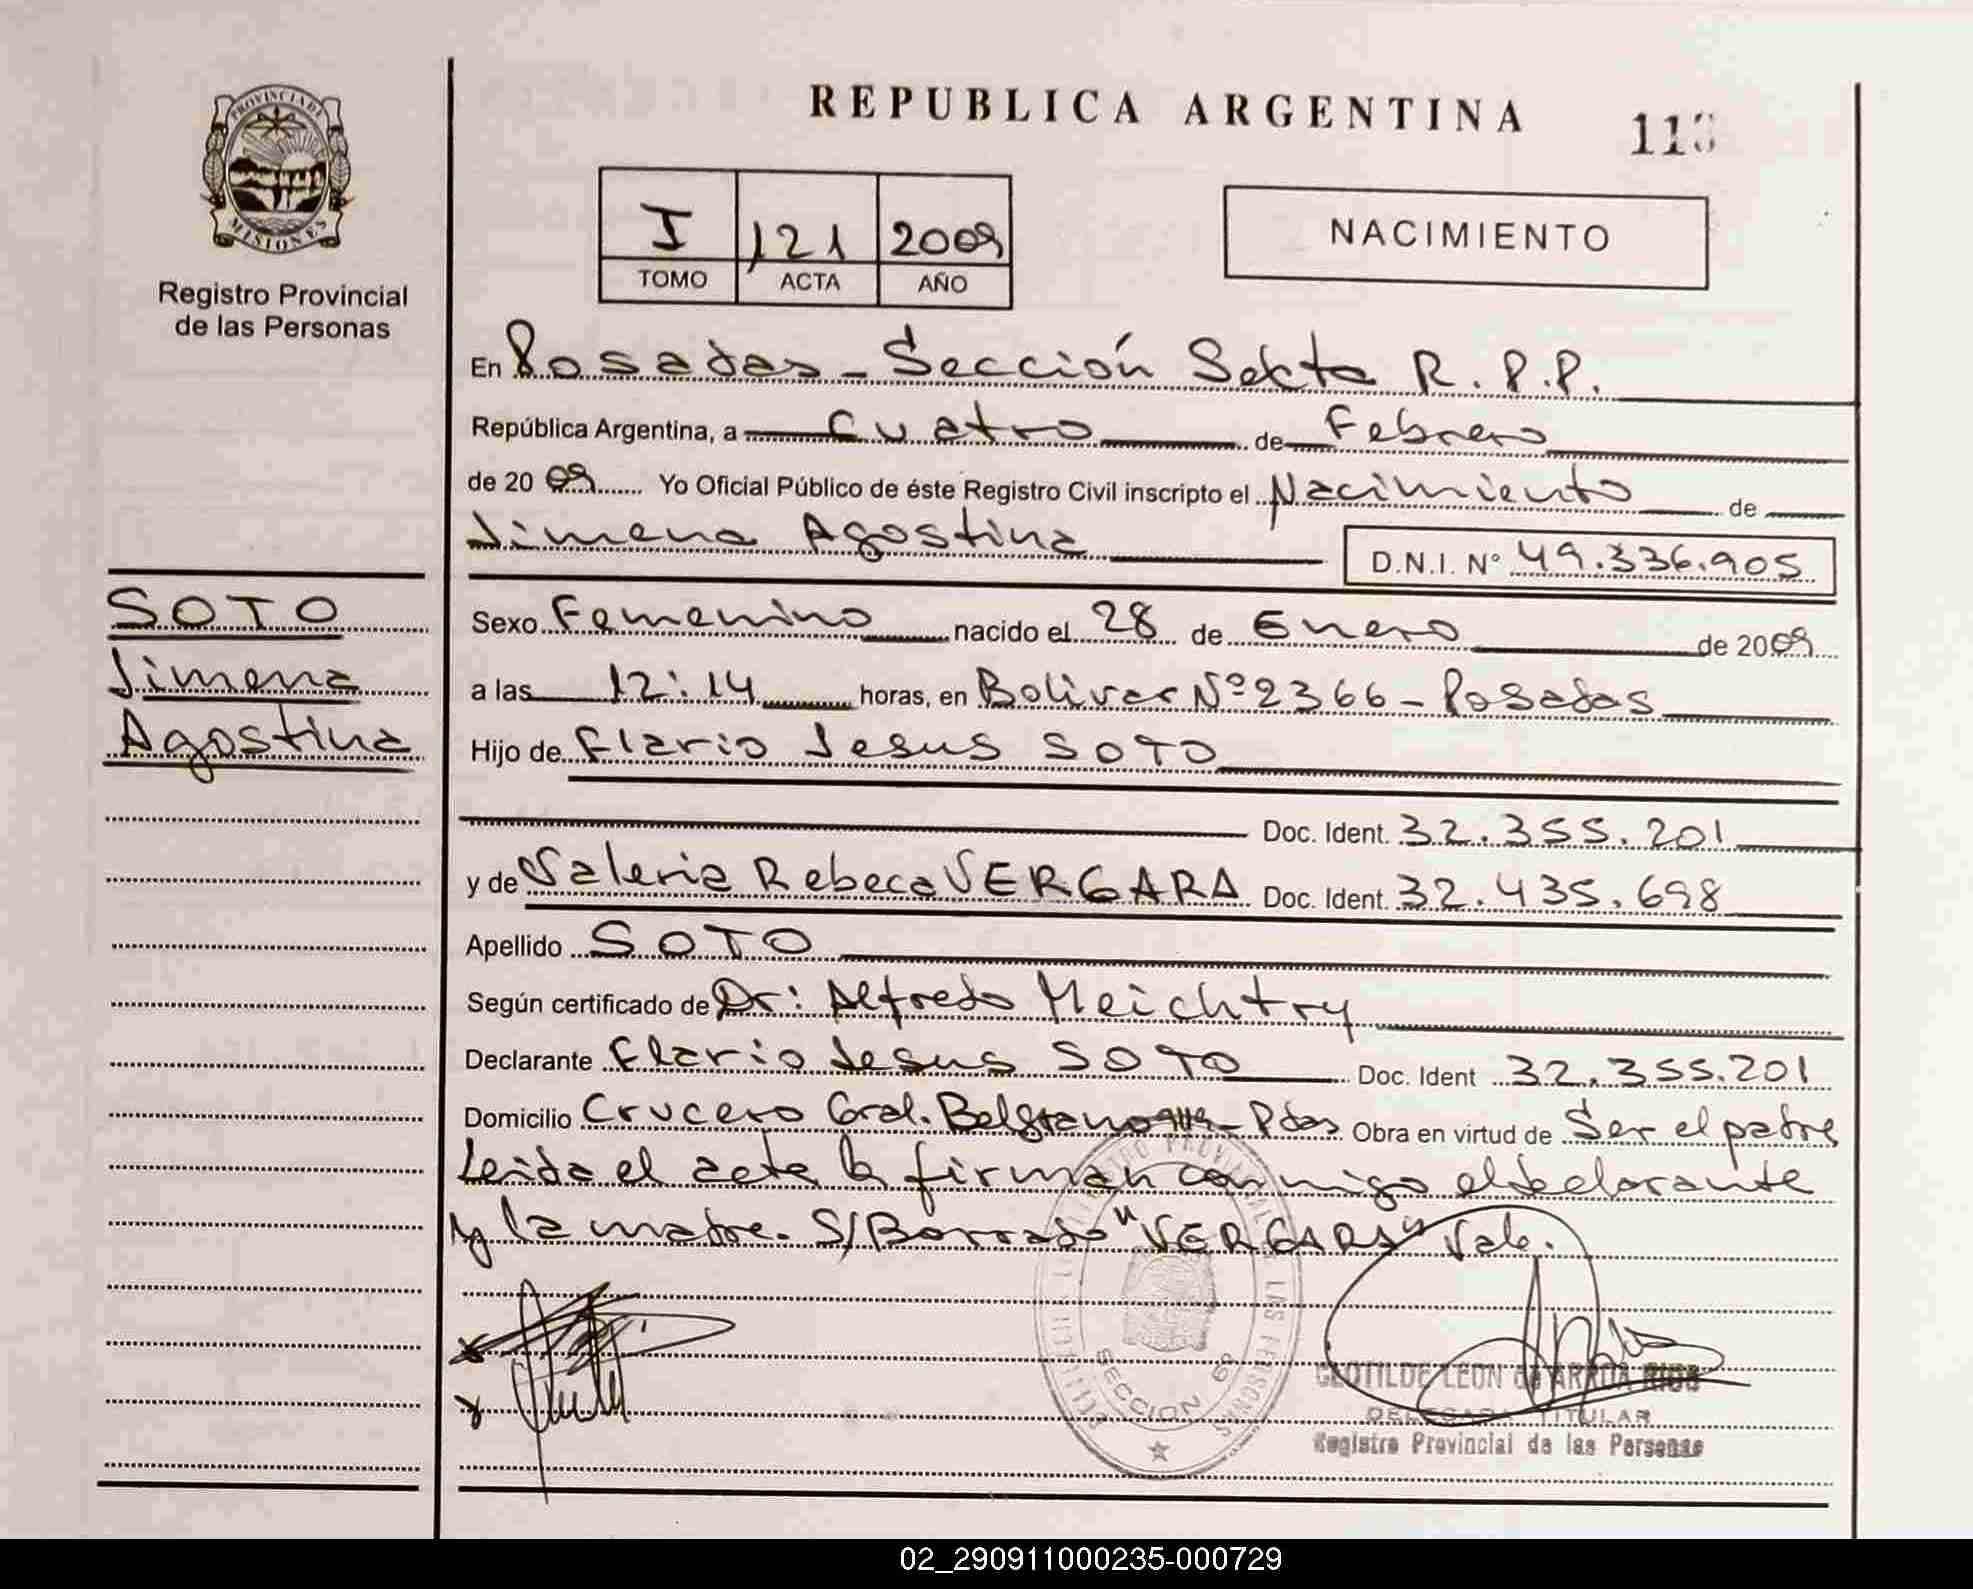 PROVINCIA DE
MISIONES
Registro Provincial
de las Personas
SOTO
Jimena
Agostina
REPUBLICA ARGENTINA
I 121 2009
TOMO ACTA AÑO
NACIMIENTO
En Posadas - Sección Sexta R.P.P.
República Argentina, a Cuatro de Febrero
de 2009 Yo Oficial Público de éste Registro Civil inscripto el Nacimiento de
Jimena Agostina D.N.I. Nº 49.336.905
Sexo Femenino nacido el 28 de Enero de 2009
a las 12:14 horas, en Bolivar Nº 2366 - Posadas
Hijo de Flavio Jesus SOTO
Doc. Ident. 32.355.201
y de Valeria Rebeca VERGARA Doc. Ident. 32.435.698
Apellido SOTO
Según certificado de Dr: Alfredo Meichtry
Declarante Flavio Jesus SOTO Doc. Ident 32.355.201
Domicilio Crucero Gral. Belgrano - Pdas Obra en virtud de Ser el padre
Leida el acta la firman conmigo el declarante
y la madre. S/Borrado "VERGARA" Vale.
SECCION 6ª
CLOTILDE LEON de ARRUA RIOS
DELEGADA TITULAR
Registro Provincial de las Personas
02_290911000235-000729